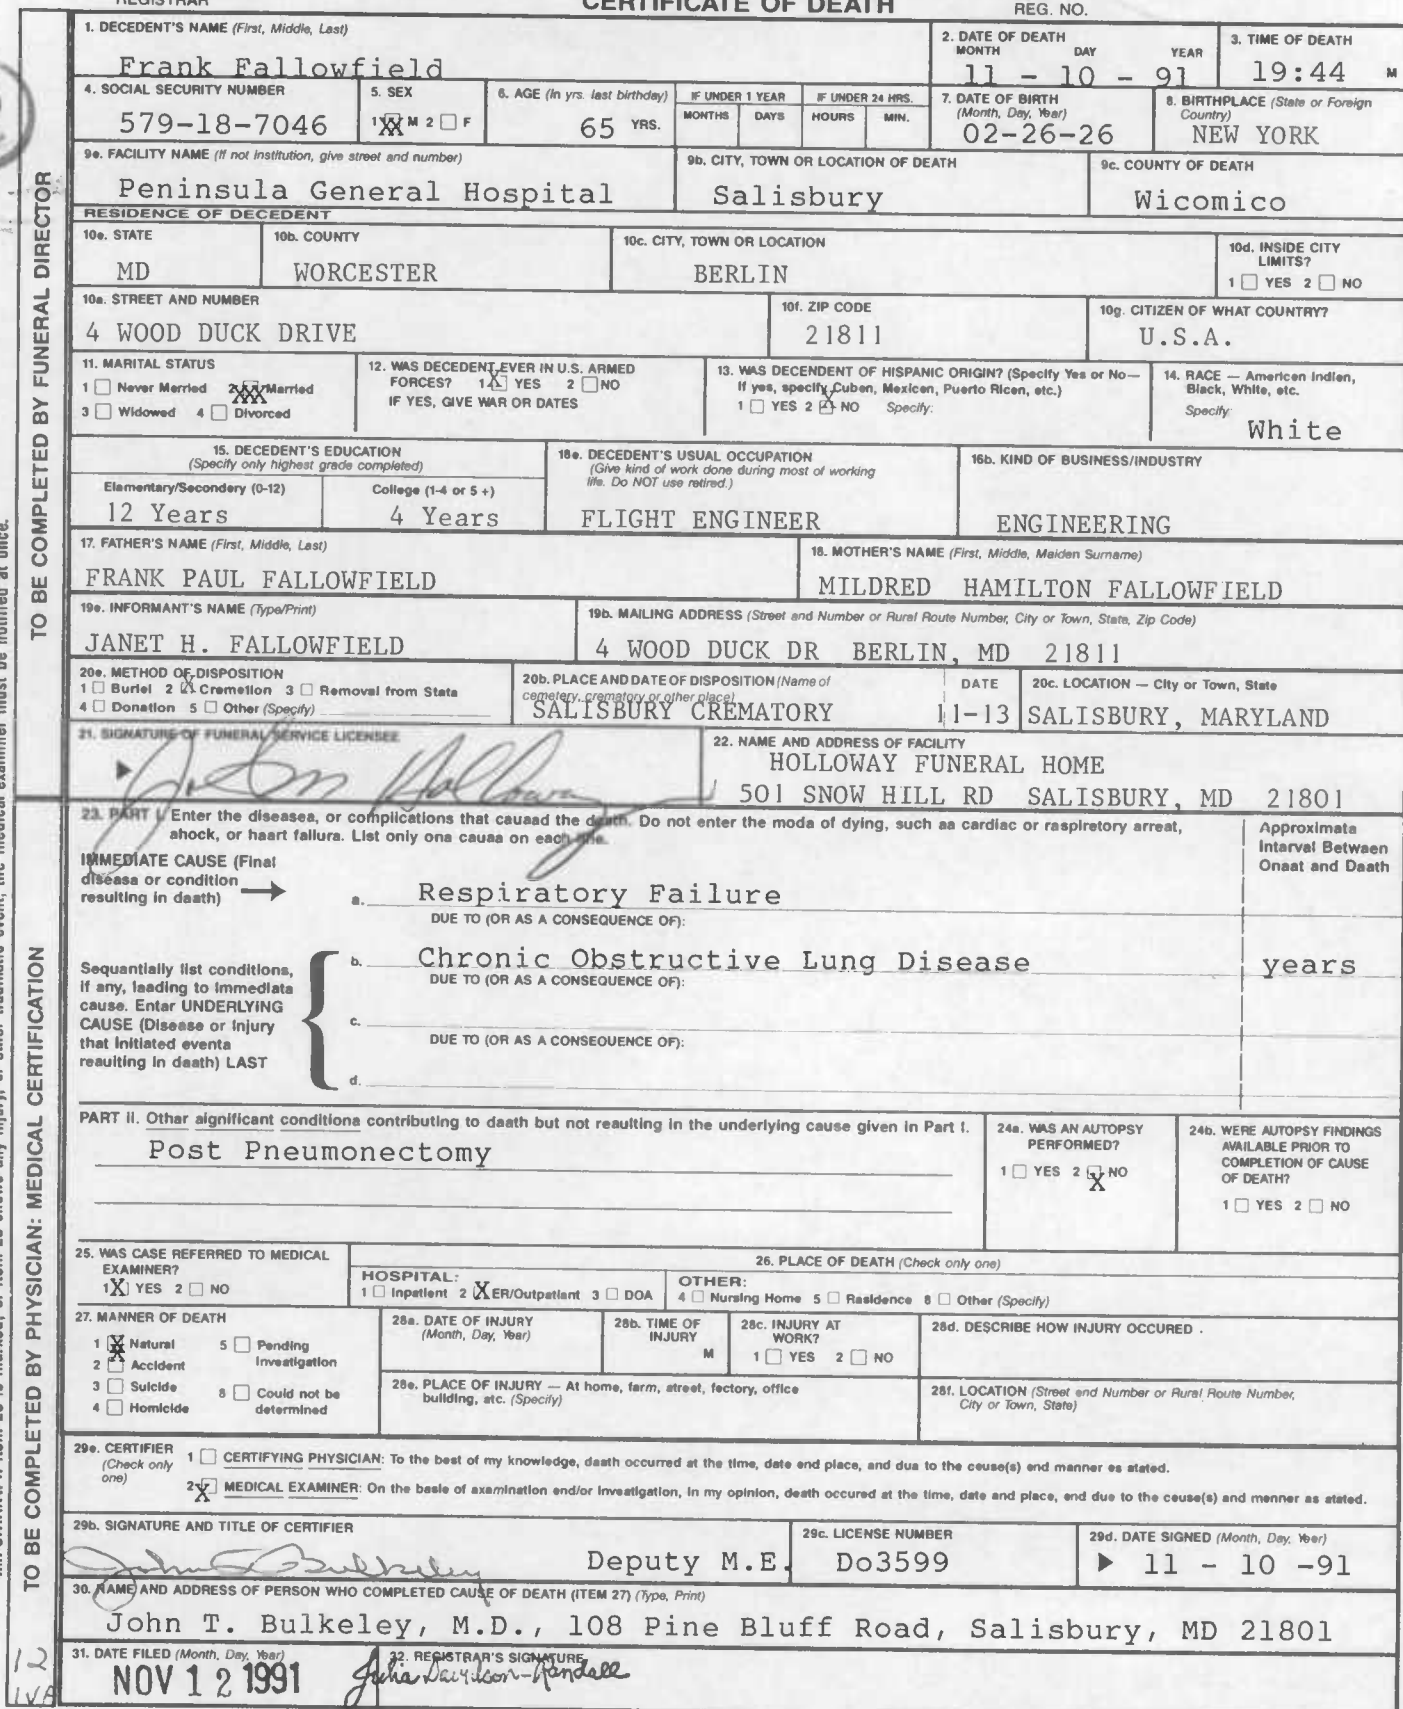 REGISTRAR
CERTIFICATE OF DEATH
REG. NO.
TO BE COMPLETED BY FUNERAL DIRECTOR
1. DECEDENT'S NAME (First, Middle, Last)
Frank Fallowfield
2. DATE OF DEATH
MONTH DAY YEAR
11 - 10 - 91
3. TIME OF DEATH
19:44 M
4. SOCIAL SECURITY NUMBER
579-18-7046
5. SEX
1 XX M 2 ☐ F
6. AGE (In yrs. last birthday)
65 YRS.
IF UNDER 1 YEAR
MONTHS DAYS
IF UNDER 24 HRS.
HOURS MIN.
7. DATE OF BIRTH
(Month, Day, Year)
02-26-26
8. BIRTHPLACE (State or Foreign
Country)
NEW YORK
9a. FACILITY NAME (If not institution, give street and number)
Peninsula General Hospital
9b. CITY, TOWN OR LOCATION OF DEATH
Salisbury
9c. COUNTY OF DEATH
Wicomico
RESIDENCE OF DECEDENT
10a. STATE
MD
10b. COUNTY
WORCESTER
10c. CITY, TOWN OR LOCATION
BERLIN
10d. INSIDE CITY
LIMITS?
1 ☐ YES 2 ☐ NO
10e. STREET AND NUMBER
4 WOOD DUCK DRIVE
10f. ZIP CODE
21811
10g. CITIZEN OF WHAT COUNTRY?
U.S.A.
11. MARITAL STATUS
1 ☐ Never Married 2 XXX Married
3 ☐ Widowed 4 ☐ Divorced
12. WAS DECEDENT EVER IN U.S. ARMED
FORCES? 1 X YES 2 ☐ NO
IF YES, GIVE WAR OR DATES
13. WAS DECENDENT OF HISPANIC ORIGIN? (Specify Yes or No—
If yes, specify Cuban, Mexican, Puerto Rican, etc.)
1 ☐ YES 2 X NO Specify:
14. RACE — American Indian,
Black, White, etc.
Specify:
White
15. DECEDENT'S EDUCATION
(Specify only highest grade completed)
Elementary/Secondary (0-12)
12 Years
College (1-4 or 5 +)
4 Years
16a. DECEDENT'S USUAL OCCUPATION
(Give kind of work done during most of working
life. Do NOT use retired.)
FLIGHT ENGINEER
16b. KIND OF BUSINESS/INDUSTRY
ENGINEERING
17. FATHER'S NAME (First, Middle, Last)
FRANK PAUL FALLOWFIELD
18. MOTHER'S NAME (First, Middle, Maiden Surname)
MILDRED HAMILTON FALLOWFIELD
19a. INFORMANT'S NAME (Type/Print)
JANET H. FALLOWFIELD
19b. MAILING ADDRESS (Street and Number or Rural Route Number, City or Town, State, Zip Code)
4 WOOD DUCK DR BERLIN, MD 21811
20a. METHOD OF DISPOSITION
1 ☐ Burial 2 X Cremation 3 ☐ Removal from State
4 ☐ Donation 5 ☐ Other (Specify)
20b. PLACE AND DATE OF DISPOSITION (Name of
cemetery, crematory or other place)
SALISBURY CREMATORY
DATE
11-13
20c. LOCATION — City or Town, State
SALISBURY, MARYLAND
21. SIGNATURE OF FUNERAL SERVICE LICENSEE
22. NAME AND ADDRESS OF FACILITY
HOLLOWAY FUNERAL HOME
501 SNOW HILL RD SALISBURY, MD 21801
TO BE COMPLETED BY PHYSICIAN: MEDICAL CERTIFICATION
23. PART I. Enter the diseases, or complications that caused the death. Do not enter the mode of dying, such as cardiac or respiratory arrest,
shock, or heart failure. List only one cause on each line.
Approximate
Interval Between
Onset and Death
IMMEDIATE CAUSE (Final
disease or condition
resulting in death)
a. Respiratory Failure
DUE TO (OR AS A CONSEQUENCE OF):
Sequentially list conditions,
if any, leading to immediate
cause. Enter UNDERLYING
CAUSE (Disease or injury
that initiated events
resulting in death) LAST
b. Chronic Obstructive Lung Disease years
DUE TO (OR AS A CONSEQUENCE OF):
c.
DUE TO (OR AS A CONSEQUENCE OF):
d.
PART II. Other significant conditions contributing to death but not resulting in the underlying cause given in Part I.
Post Pneumonectomy
24a. WAS AN AUTOPSY
PERFORMED?
1 ☐ YES 2 X NO
24b. WERE AUTOPSY FINDINGS
AVAILABLE PRIOR TO
COMPLETION OF CAUSE
OF DEATH?
1 ☐ YES 2 ☐ NO
25. WAS CASE REFERRED TO MEDICAL
EXAMINER?
1 X YES 2 ☐ NO
26. PLACE OF DEATH (Check only one)
HOSPITAL:
1 ☐ Inpatient 2 X ER/Outpatient 3 ☐ DOA
OTHER:
4 ☐ Nursing Home 5 ☐ Residence 6 ☐ Other (Specify)
27. MANNER OF DEATH
1 X Natural 5 ☐ Pending
Investigation
2 ☐ Accident
3 ☐ Suicide 6 ☐ Could not be
determined
4 ☐ Homicide
28a. DATE OF INJURY
(Month, Day, Year)
28b. TIME OF
INJURY
M
28c. INJURY AT
WORK?
1 ☐ YES 2 ☐ NO
28d. DESCRIBE HOW INJURY OCCURED
28e. PLACE OF INJURY — At home, farm, street, factory, office
building, etc. (Specify)
28f. LOCATION (Street and Number or Rural Route Number,
City or Town, State)
29a. CERTIFIER
(Check only
one)
1 ☐ CERTIFYING PHYSICIAN: To the best of my knowledge, death occurred at the time, date and place, and due to the cause(s) and manner as stated.
2 X MEDICAL EXAMINER: On the basis of examination and/or investigation, in my opinion, death occured at the time, date and place, and due to the cause(s) and manner as stated.
29b. SIGNATURE AND TITLE OF CERTIFIER
John T Bulkeley Deputy M.E.
29c. LICENSE NUMBER
Do3599
29d. DATE SIGNED (Month, Day, Year)
11 - 10 -91
30. NAME AND ADDRESS OF PERSON WHO COMPLETED CAUSE OF DEATH (ITEM 27) (Type, Print)
John T. Bulkeley, M.D., 108 Pine Bluff Road, Salisbury, MD 21801
31. DATE FILED (Month, Day, Year)
NOV 12 1991
32. REGISTRAR'S SIGNATURE
Julia Davidson-Randall
12